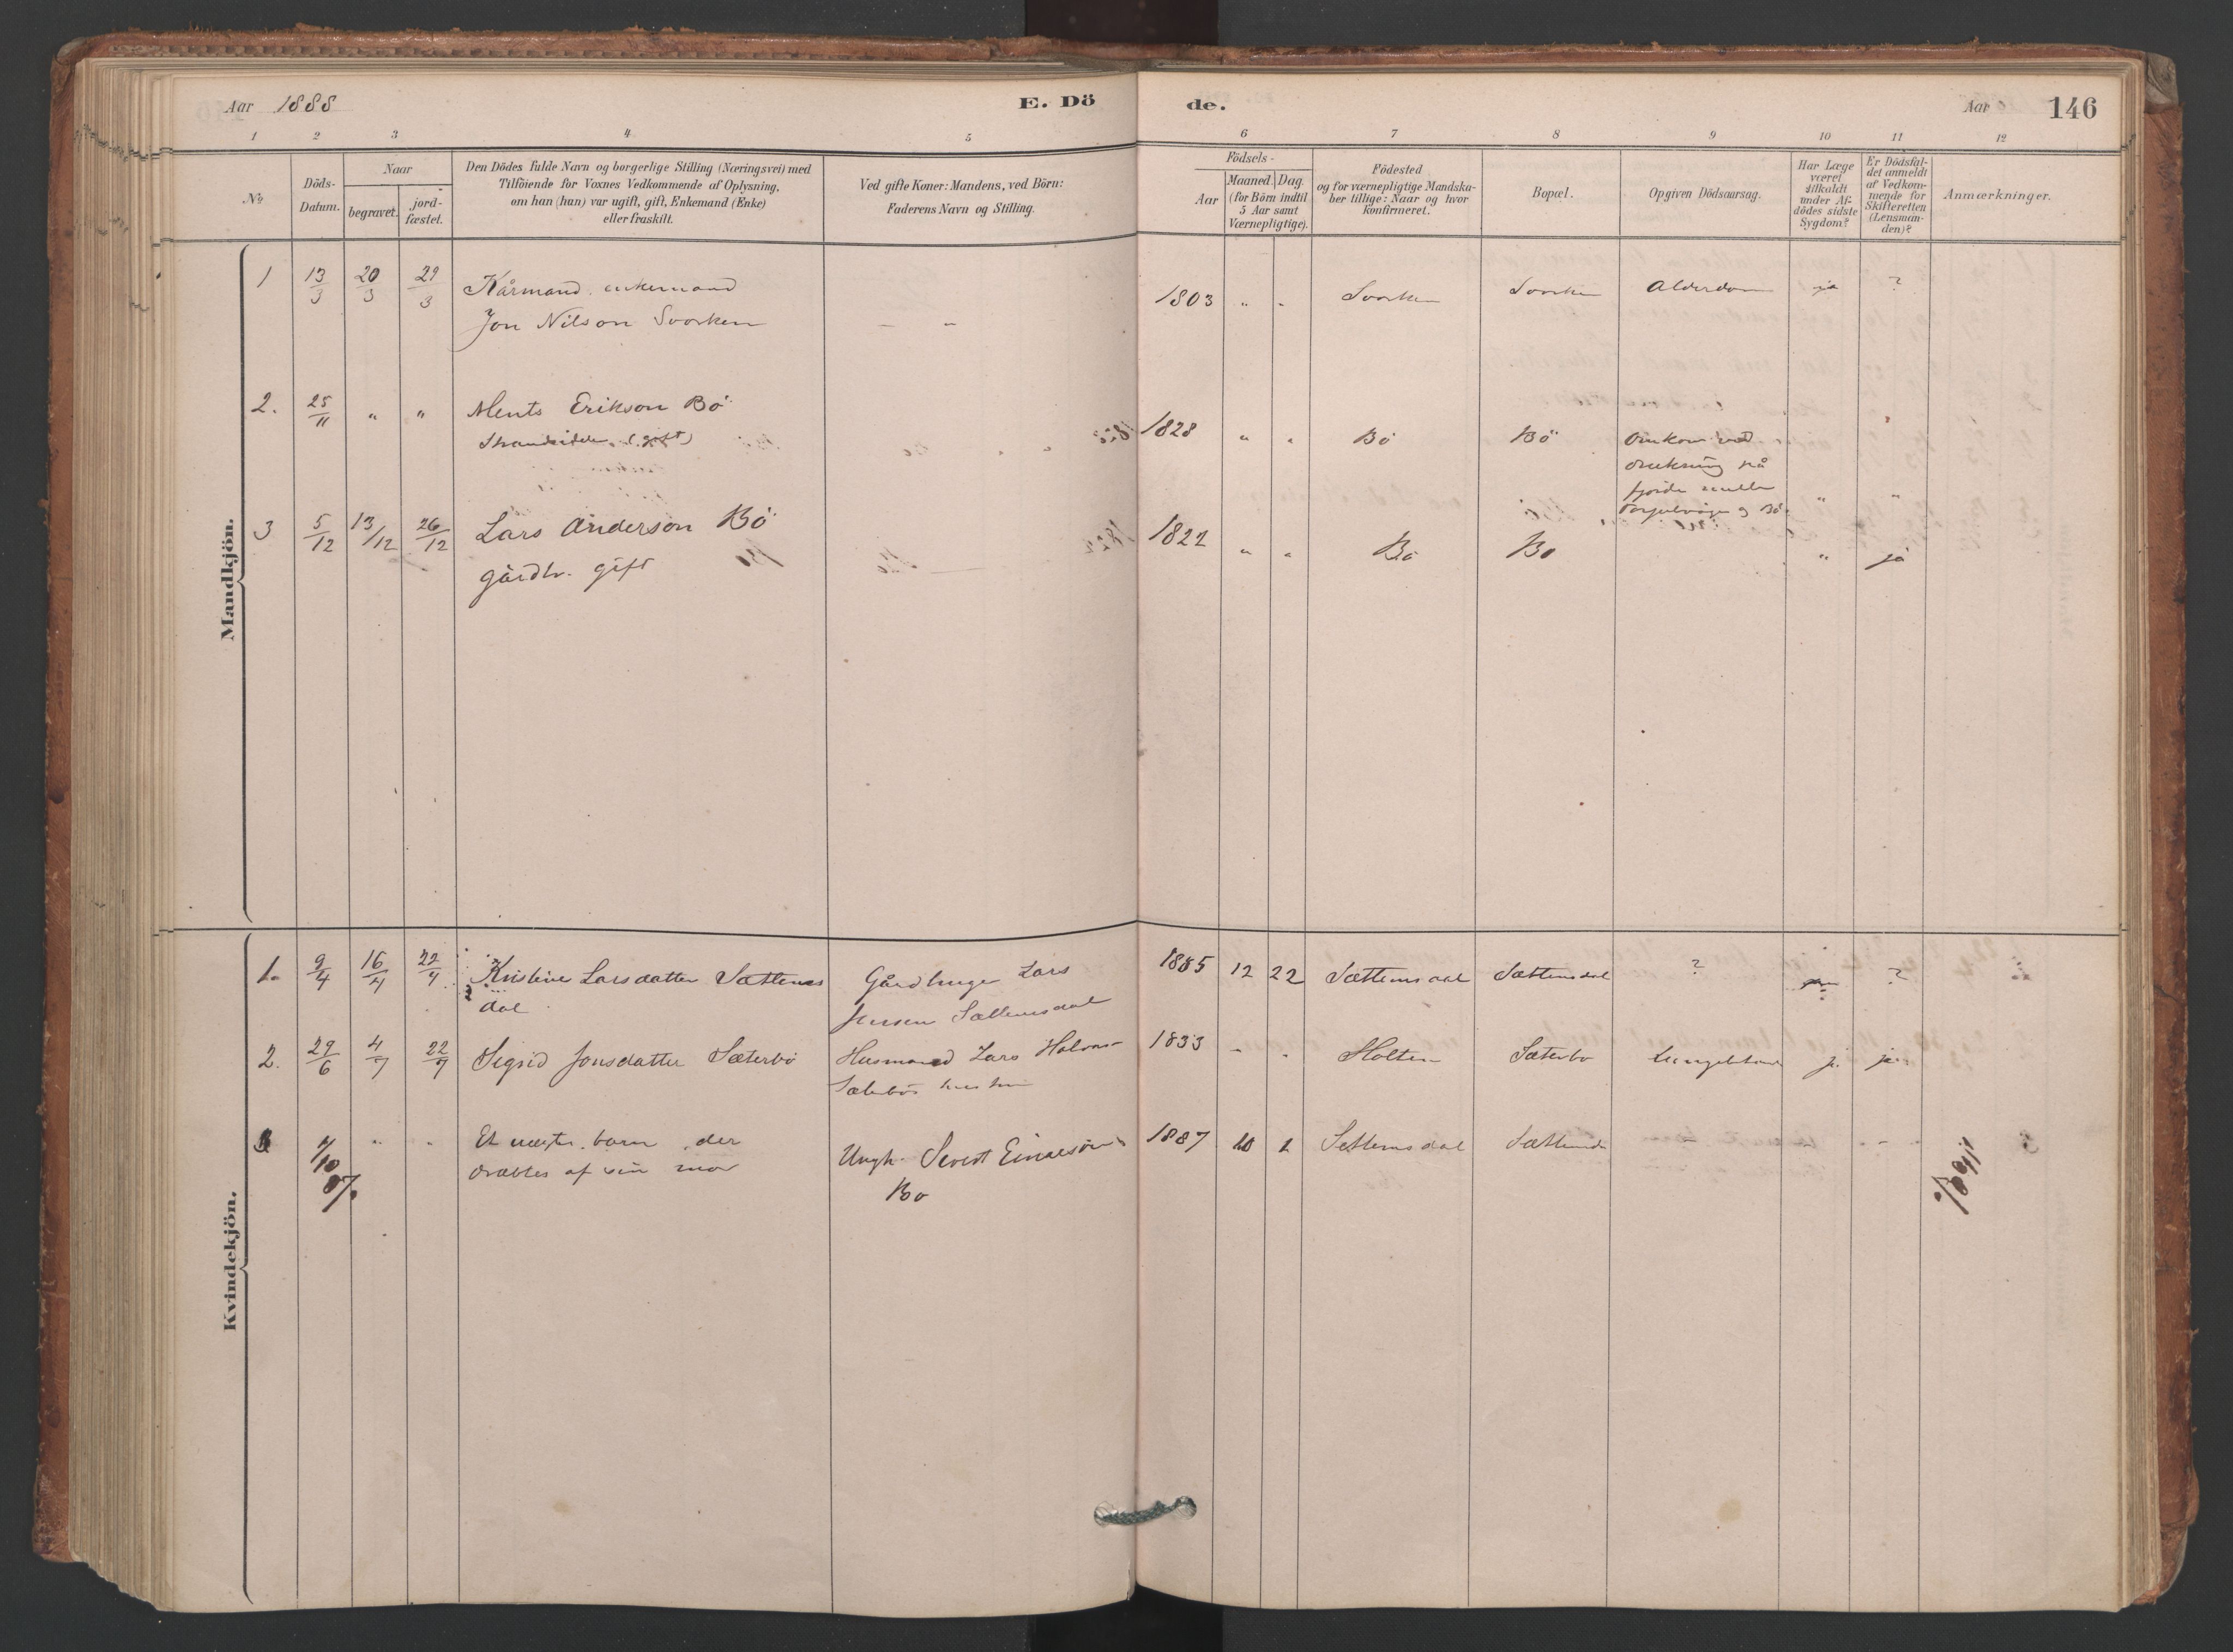 Aar 1888
E. Dö
de.
Aar
146
1 2 3 4 5 6 7 8 9 10 11 12
No
Döds-
Datum.
Naar
begravet.
jord-
fæstet.
Den Dödes fulde Navn og borgerlige Stilling (Næringsvei) med
Tilföiende for Voxnes Vedkommende af Oplysning,
om han (hun) var ugift, gift, Enkemand (Enke)
eller fraskilt.
Ved gifte Koner: Mandens, ved Börn:
Faderens Navn og Stilling.
Födsels-
Aar
Maaned.
Dag.
(for Börn indtil
5 Aar samt
Værnepligtige).
Födested
og for værnepligtige Mandska-
ber tillige: Naar og hvor
konfirmeret.
Bopæl.
Opgiven Dödsaarsag.
Har Læge
været
tilkaldt
under Af-
dödes sidste
Sygdom?
Er Dödsfal-
det anmeldt
af Vedkom-
mende for
Skifteretten
(Lensman-
den)?
Anmærkninger.
Mandkjön.
1 13/3 20/3 29/3 Kårmand enkemand
Jon Nilson Svorken
1803 " " Svorken Svorken Alderdom ja ?
2. 25/11 " " Ments Erikson Bö
Strandsidder (gift)
1828 " " Bö Bö Omkom ved
drukning på
fjorden mellem
og Bö " "
3 5/12 13/12 26/12 Lars Anderson Bö
gårdbr. gift
1822 " " Bö Bö " ja
Kvindekjön.
1. 9/4 16/4 22/4 Kristine Larsdatter Sættems
dal
Gårdbruger Lars
Jensen Sættemsdal
1885 12 22 Sættemsdal Sættemsdal ? ?
2. 29/6 4/7 22/7 Sigrid Jonsdatter Sæterbö
Husmand Lars Halvors-
Sæterbös hustru
1833 " " Holten Sæterbö ja ja
3 1/10 87 " " Et uægte barn der
dræbtes af sin mor
Ungk. Sivert Einarsön
Bö
1887 10 1 Settemsdal Sættemsdal - - -